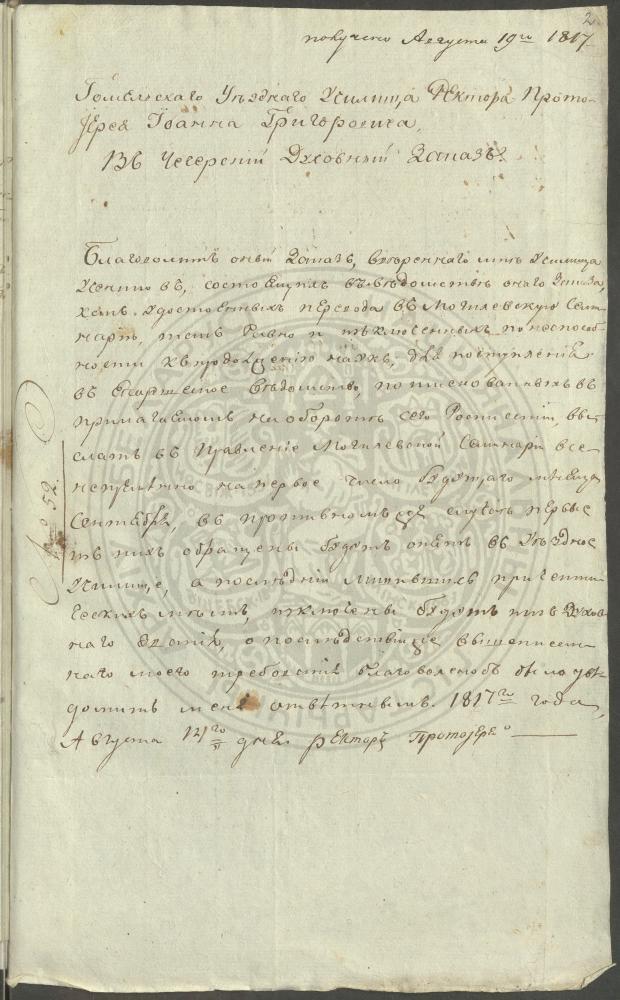 2
получено Августа 19го 1817
Гомельскаго Уезднаго Училища Ректора Прото-
Іерея Іоанна Григоровича,
Въ Чечерскій Духовный
Благоволитъ оный ввереннаго мнѣ Училища
Ученико въ, состоящихъ въ вѣдомствѣ онаго
какъ удостоенныхъ перевода въ Могилевскую Семи-
нарію, такъ равно и изключенныхъ по неспособ-
ности къ продолженію наукъ, для поступленія
въ вѣдомство, поименованныхъ въ
прилагаемомъ на оборотѣ сего Росписаніи, вы-
слать въ Правленіе Могилевской Семинаріи все-
непремѣнно на первое число будущаго месяца
Сентября, въ противномъ же случаѣ первые
изъ нихъ обращены будутъ опять въ Уездное
Училище, а последніи причетни-
ческихъ мѣстъ, изключены будутъ изъ Духов-
наго о послѣдствіи же вышеписан-
наго моего требованія благоволеноѣ было уве-
домить меня отвѣтнымъ. 1817го года,
Августа 14го дня. Ректоръ Протоіерей
№ 52.